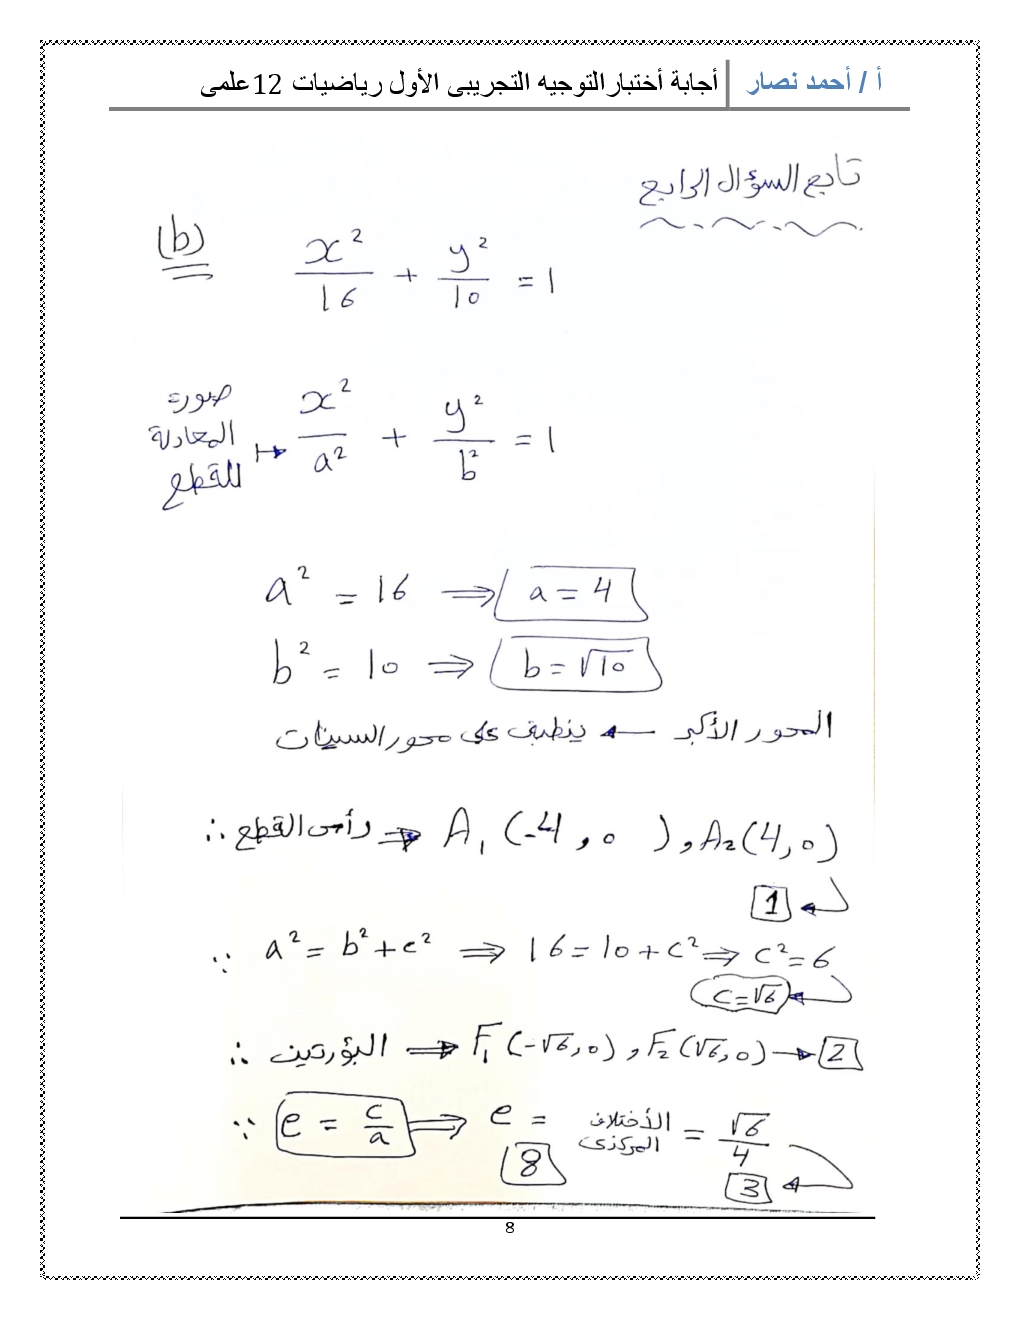 أ / أحمد نصار أجابة أختبار التوجيه التجريبى الأول رياضيات 12 علمى
تابع السؤال الرابع
(b) x²/16 + y²/10 = 1
صورة المعادلة للقطع ↦ x²/a² + y²/b² = 1
a² = 16 ⟹ a = 4
b² = 10 ⟹ b = √10
المحور الأكبر ← ينطبق على محور السينات
∴ رأس القطع ⟹ A₁ (-4 , 0) , A₂ (4 , 0)
1
∵ a² = b² + c² ⟹ 16 = 10 + c² ⟹ c² = 6
c = √6
∴ البؤرتين ⟹ F₁ (-√6 , 0) , F₂ (√6 , 0) → 2
∵ e = c/a ⟹ e = الأختلاف المركزى = √6/4
8
3
8